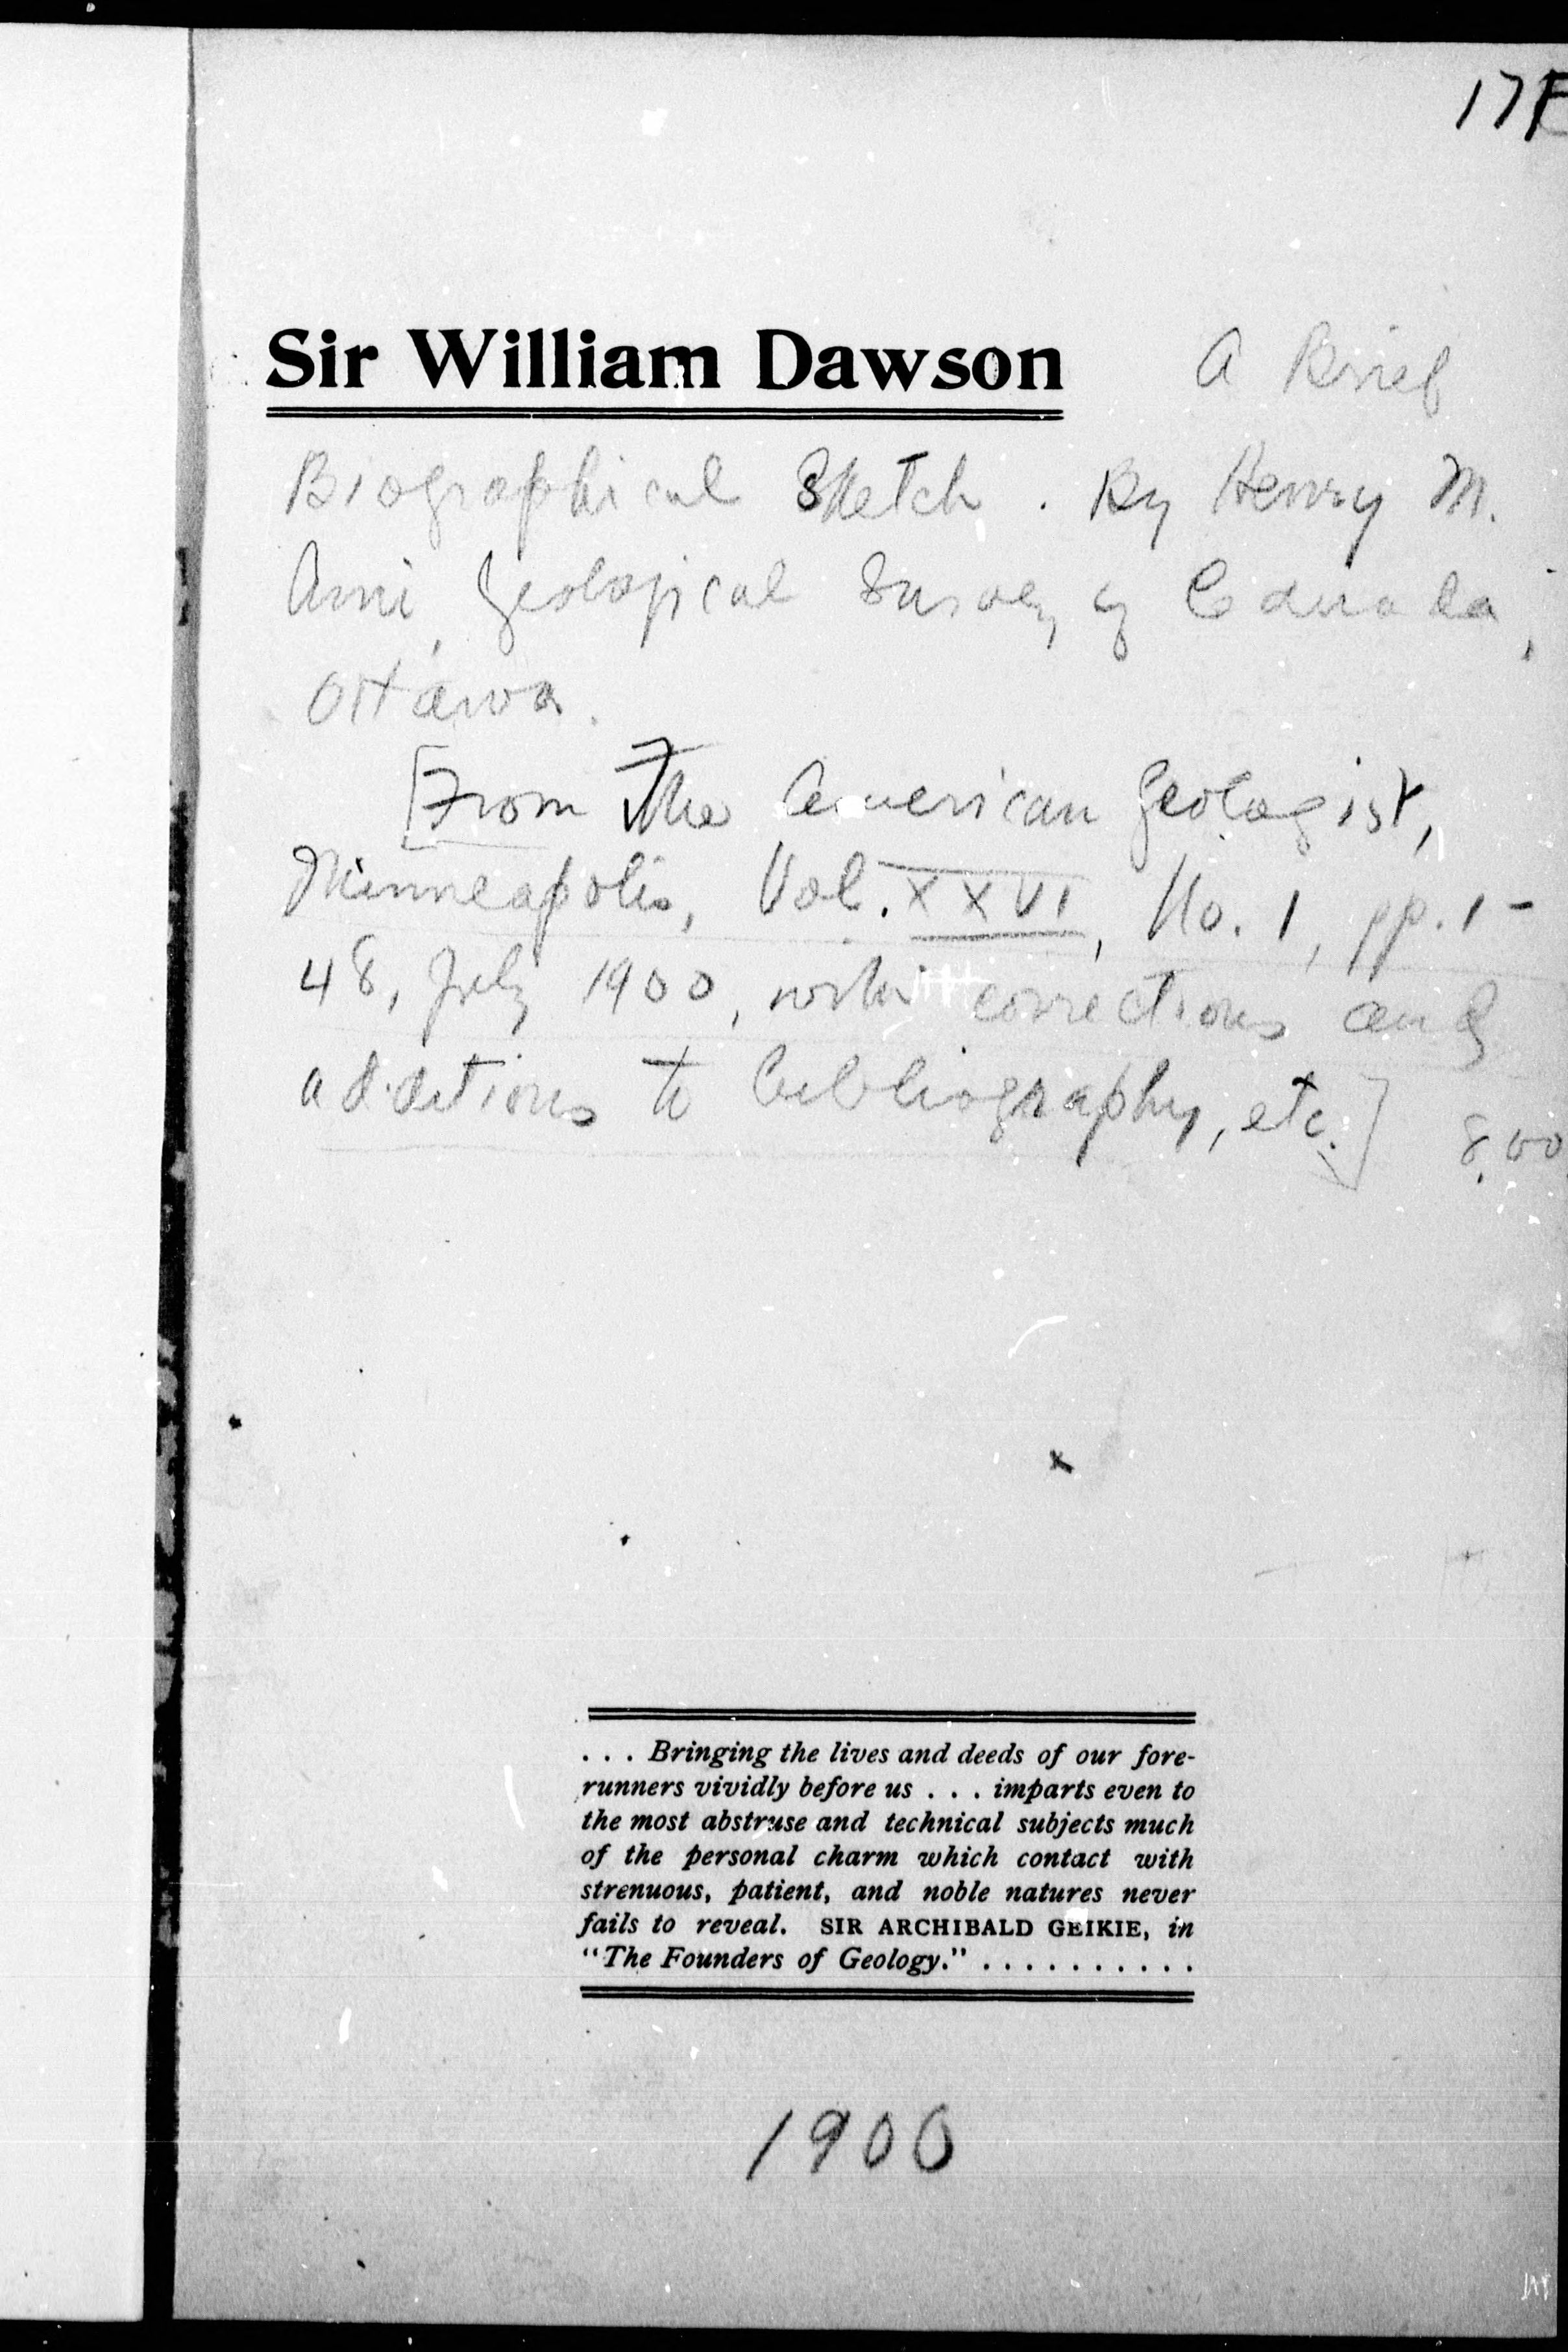 17E
Sir William Dawson A Brief
Biographical Sketch. By Henry M.
Ami, Geological Survey of Canada,
Ottawa.
[From The American Geologist,
Minneapolis, Vol. XXVI, No. 1, pp. 1-
48, July 1900, with corrections and
additions to bibliography, etc.] 8.00
. . . Bringing the lives and deeds of our fore-
runners vividly before us . . . imparts even to
the most abstruse and technical subjects much
of the personal charm which contact with
strenuous, patient, and noble natures never
fails to reveal. SIR ARCHIBALD GEIKIE, in
"The Founders of Geology." . . . . . . . . . .
1900